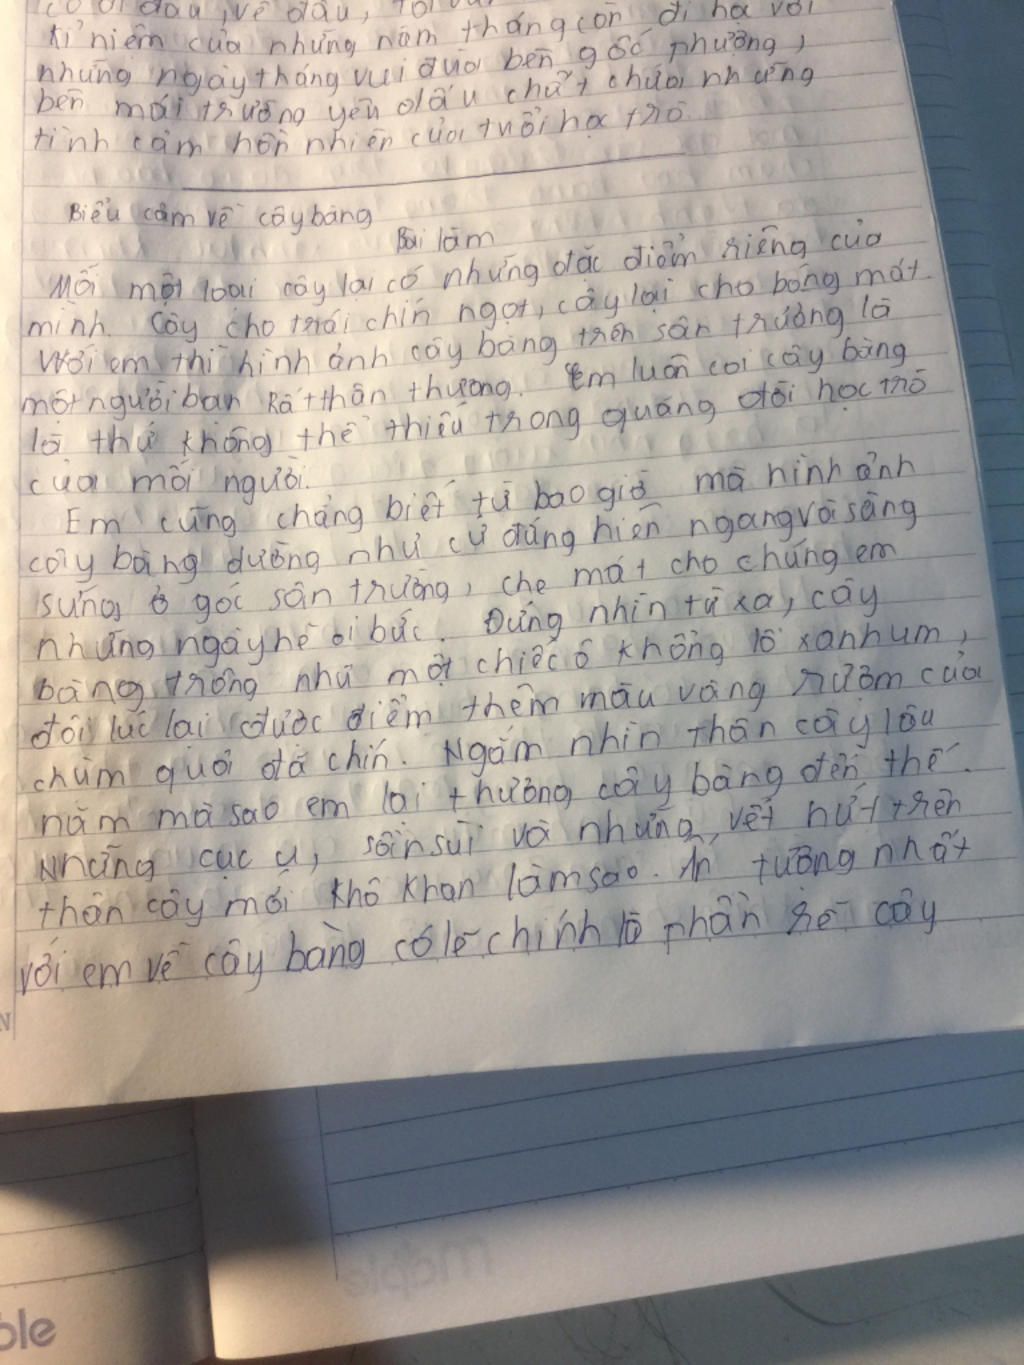 có đi đâu, về đâu, tôi
kỉ niệm của những năm tháng còn đi học với
những ngày tháng vui đùa bên gốc phượng,
bên mái trường yêu dấu chất chứa những
tình cảm hồn nhiên của tuổi học trò
Biểu cảm về cây bàng
Bài làm
Mỗi một loài cây lại có những đặc điểm riêng của
mình. Cây cho trái chín ngọt, cây lại cho bóng mát.
Với em thì hình ảnh cây bàng trên sân trường là
một người bạn rất thân thương. Em luôn coi cây bàng
là thứ không thể thiếu trong quãng đời học trò
của mỗi người.
Em cũng chẳng biết từ bao giờ mà hình ảnh
cây bàng dường như cứ đứng hiên ngang và sừng
sững ở góc sân trường, che mát cho chúng em
những ngày hè oi bức. Đứng nhìn từ xa, cây
bàng trông như một chiếc ô khổng lồ xanh um,
đôi lúc lại được điểm thêm màu vàng rườm của
chùm quả đã chín. Ngắm nhìn thân cây lâu
năm mà sao em lại thương cây bàng đến thế.
Những cục u, sần sùi và những vết nứt trên
thân cây mới khô khan làm sao. Ấn tượng nhất
với em về cây bàng có lẽ chính là phần rễ cây
N
ble